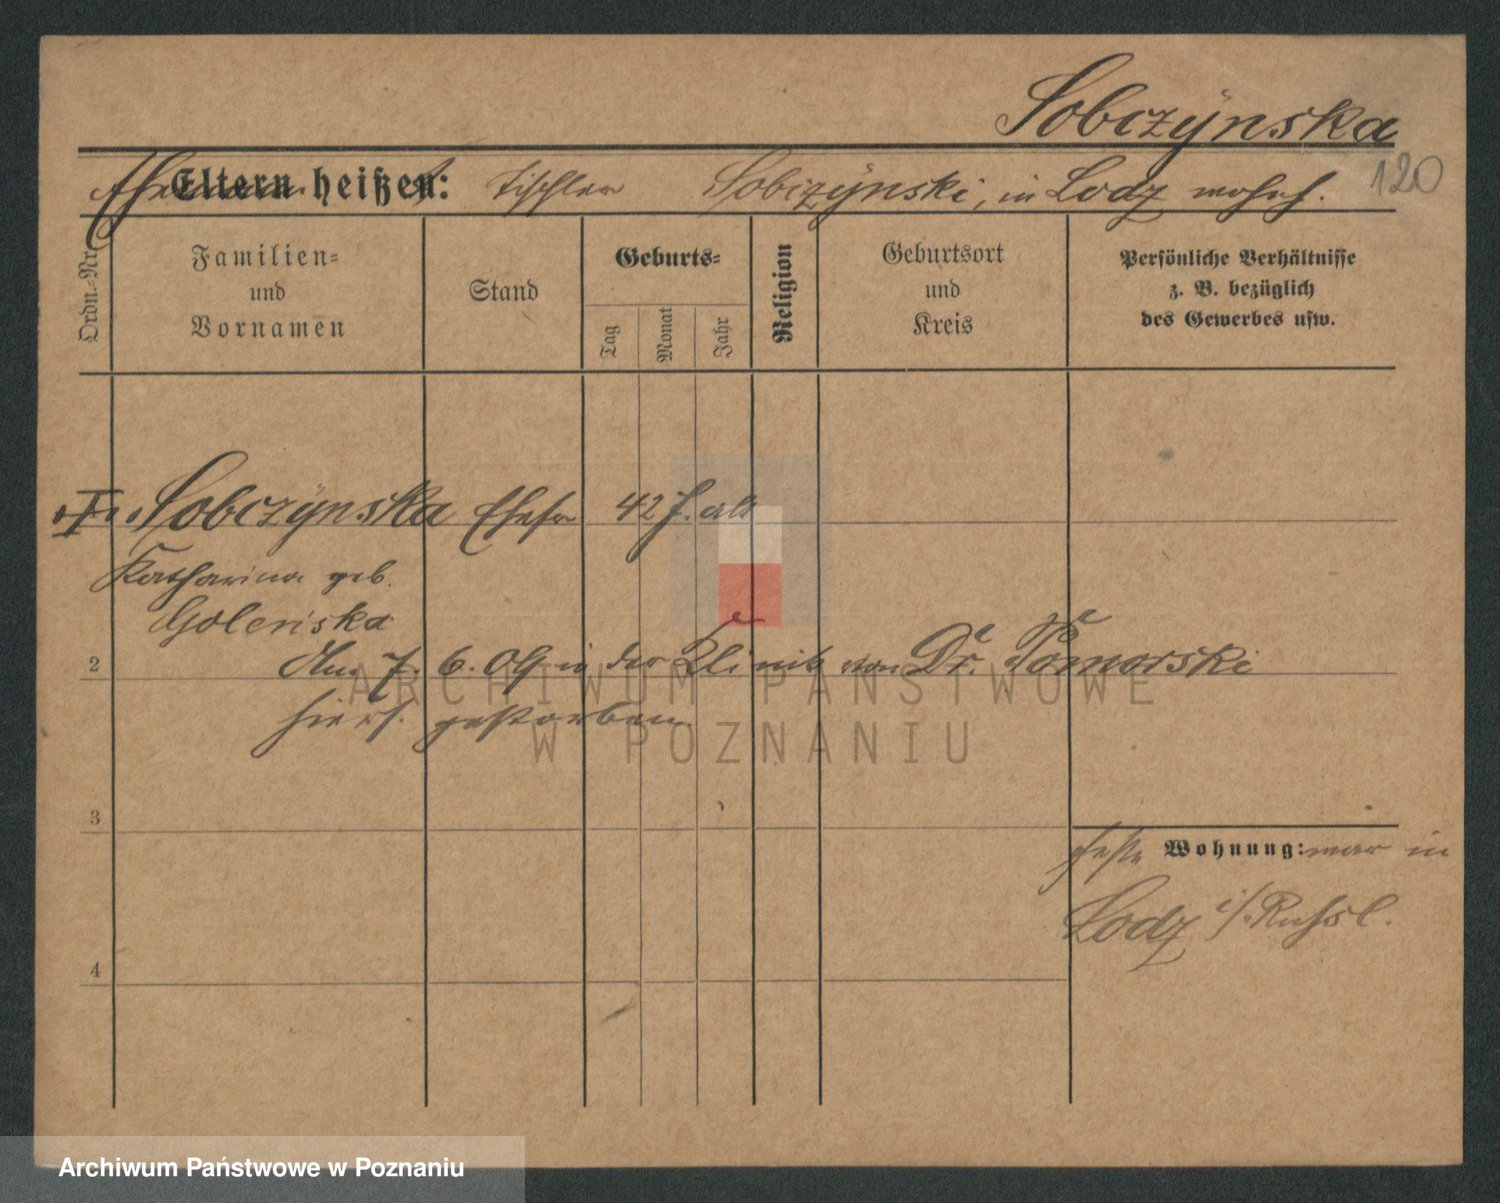 Sobczÿnska
120
Eltern heißen:
Ehemann Tischler Sobczÿnski, in Lodz wohnh.
Ordn.-Nr.
Familien-
und
Vornamen
Stand
Geburts-
Tag
Monat
Jahr
Religion
Geburtsort
und
Kreis
Persönliche Verhältnisse
z. B. bezüglich
des Gewerbes usw.
I. Sobczÿnska Ehefr 42 J. alt
Katharina geb.
Goleńska
2
Am 7. 6. 09 in der Klinik von Dr. Pomorski
hiers. gestorben
3
feste Wohnung: war in
Lodz i/Russl.
4
ARCHIWUM PAŃSTWOWE
W POZNANIU
Archiwum Państwowe w Poznaniu